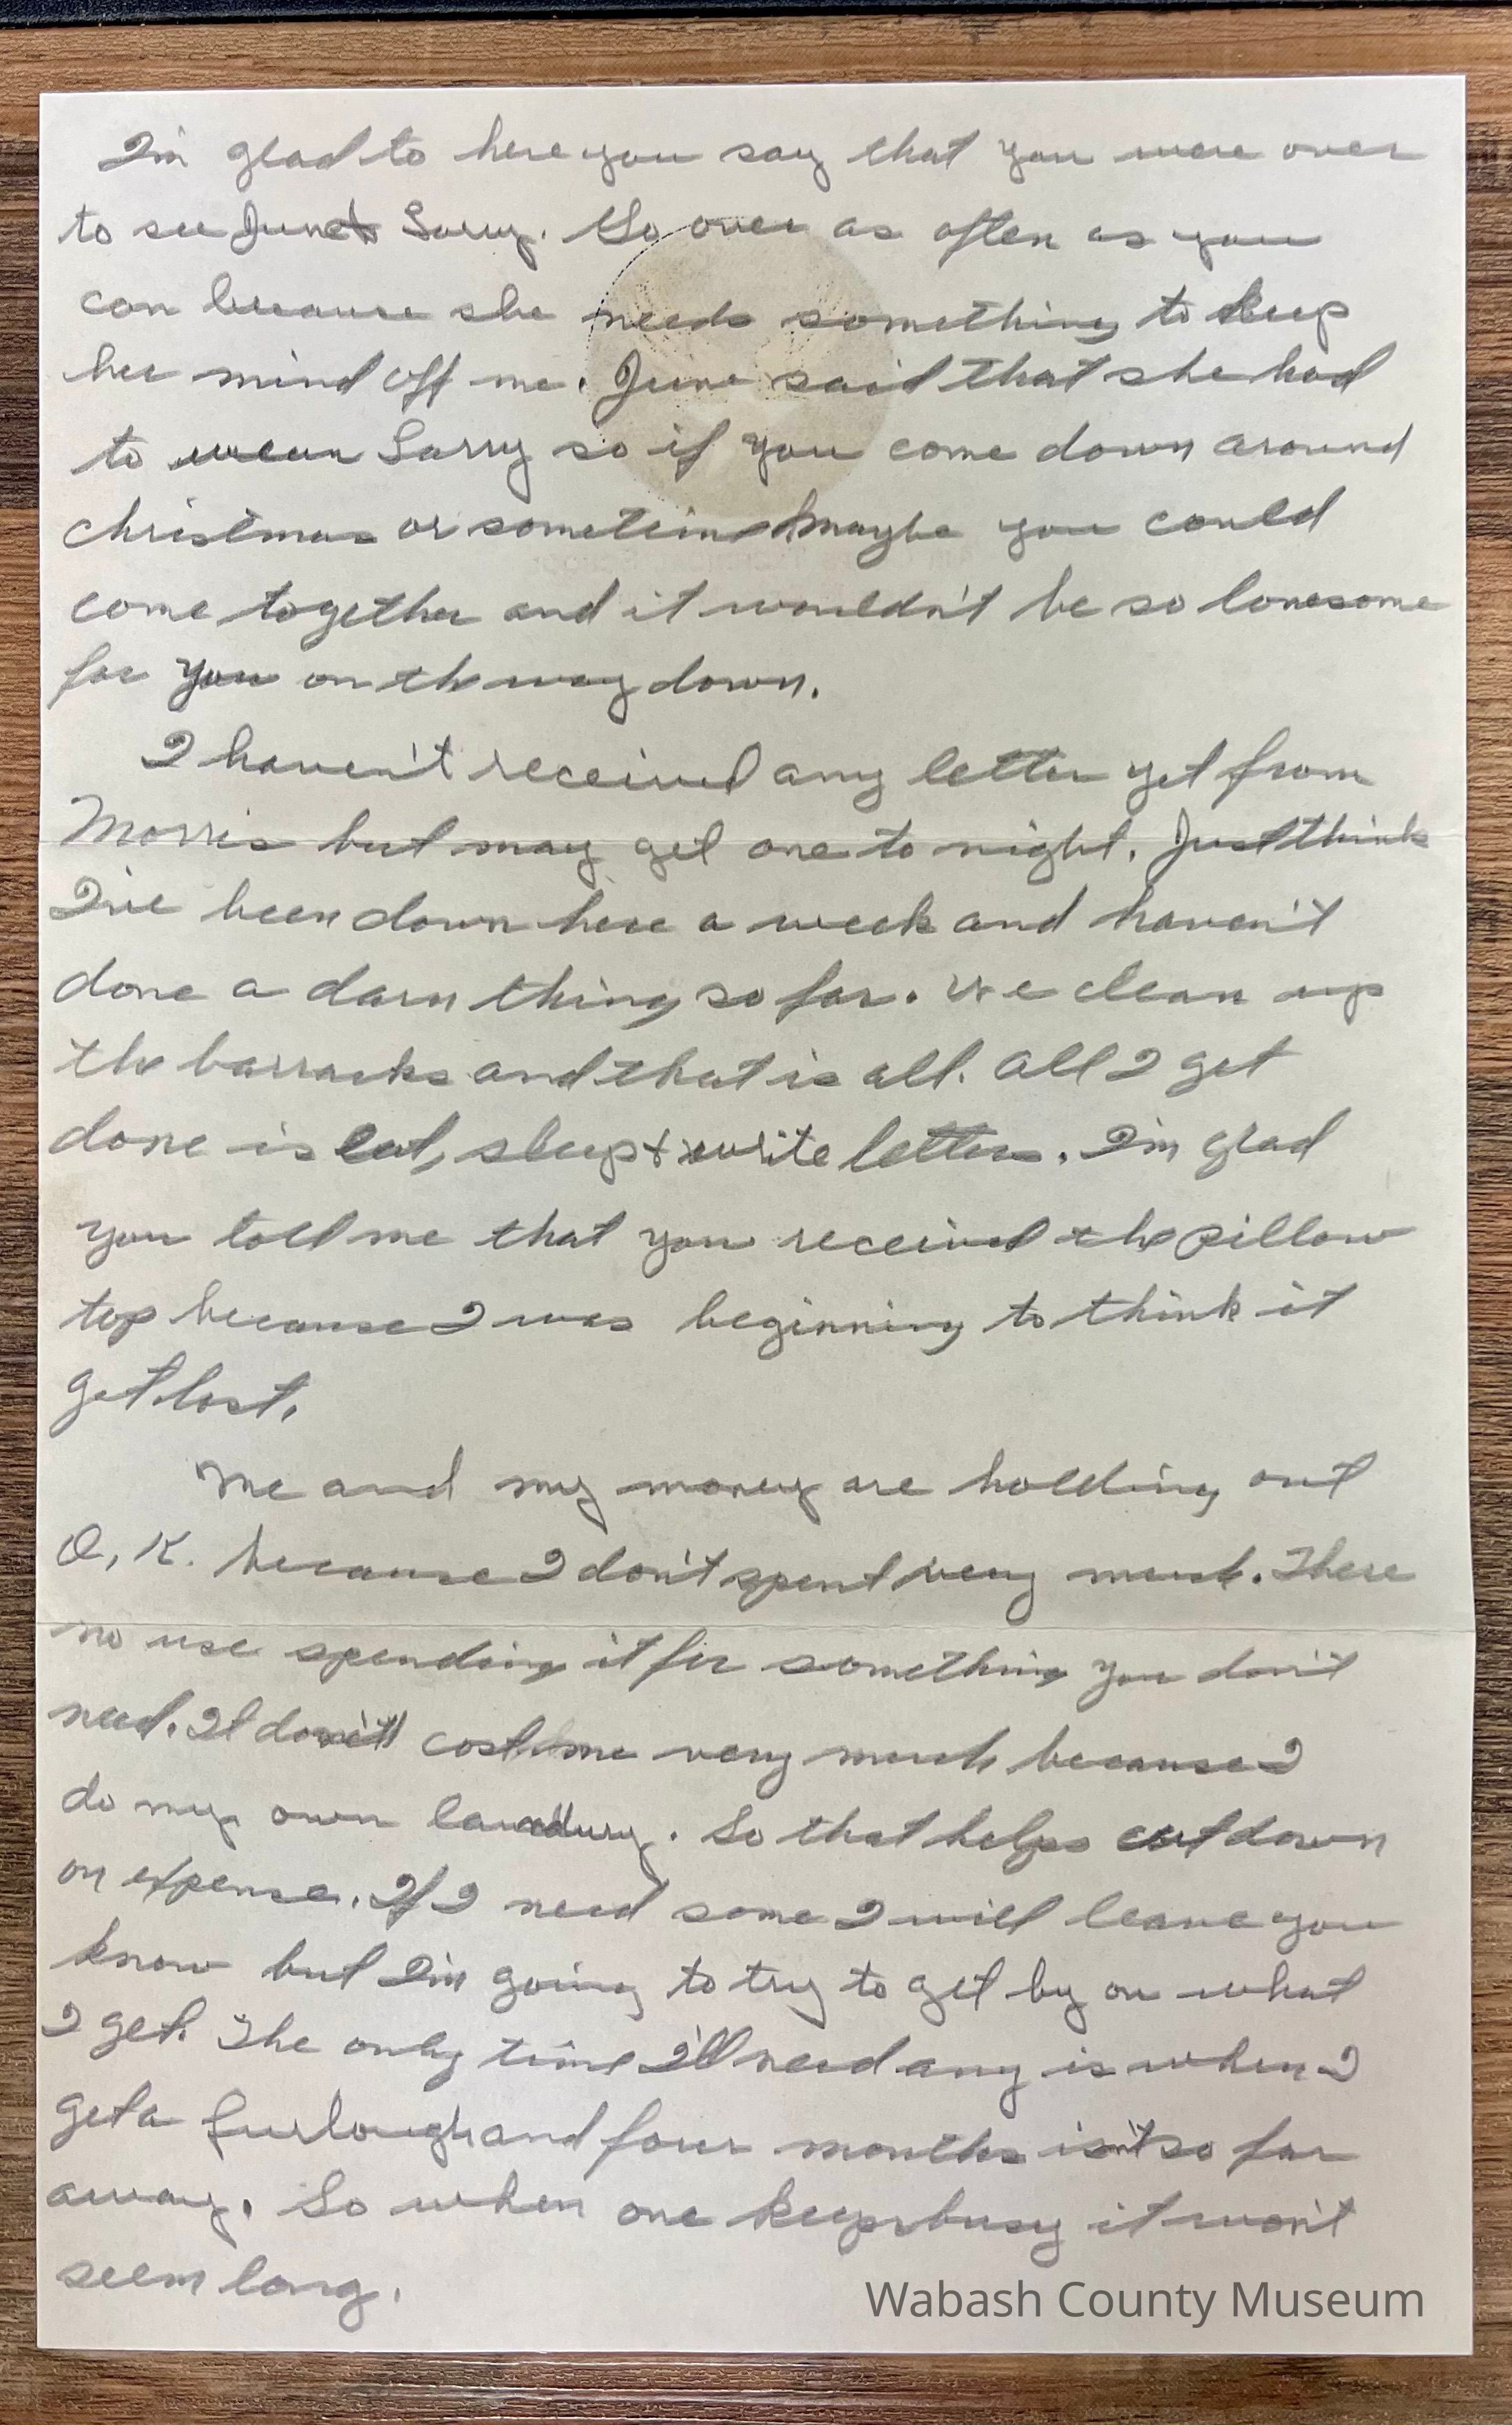 I'm glad to here you say that you were over
to see June & Larry. Go over as often as you
can because she needs something to keep
her mind off me. June said that she had
to wean Larry so if you come down around
christmas or sometime maybe you could
come together and it wouldn't be so lonesome
for you on the way down.
I haven't received any letter yet from
Morris but may get one to night. Just think
I've been down here a week and haven't
done a darn thing so far. We clean up
the barracks and that is all. All I get
done is eat, sleep & write letters. I'm glad
you told me that you received the pillow
top because I was beginning to think it
got lost.
Me and my money are holding out
O.K. because I don't spent very much. There
no use spending it for something you don't
need. It don't cost me very much because I
do my own laundury. So that helps cut down
on expense. If I need some I will leave you
know but I'm going to try to get by on what
I get. The only time I'll need any is when I
get a furlough and four months isn't so far
away. So when one keeps busy it won't
seem long.
Wabash County Museum